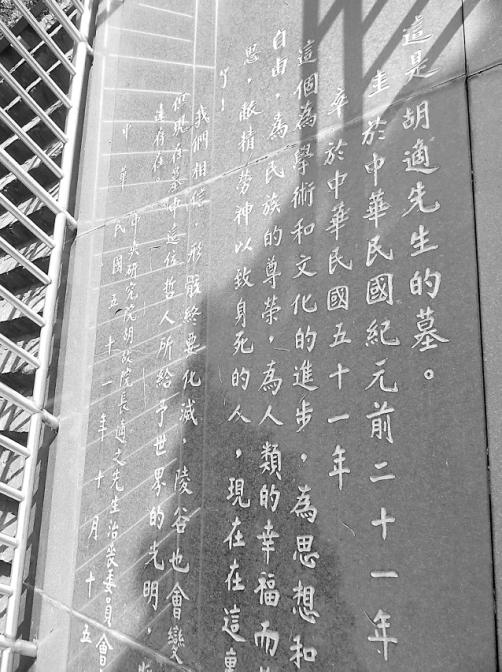 這是胡適先生的墓。
生於中華民國紀元前二十一年
卒於中華民國五十一年
這個為學術和文化的進步,為思想和
自由,為民族的尊榮,為人類的幸福而
思,敝精勞神以致身死的人,現在在這裏
了!
我們相信,形骸終要化滅,陵谷也會變
但現在墓中這位哲人所給予世界的光明,
遠存在。
中央研究院胡故院長適之先生治喪委員會
中華民國五十一年十月十五